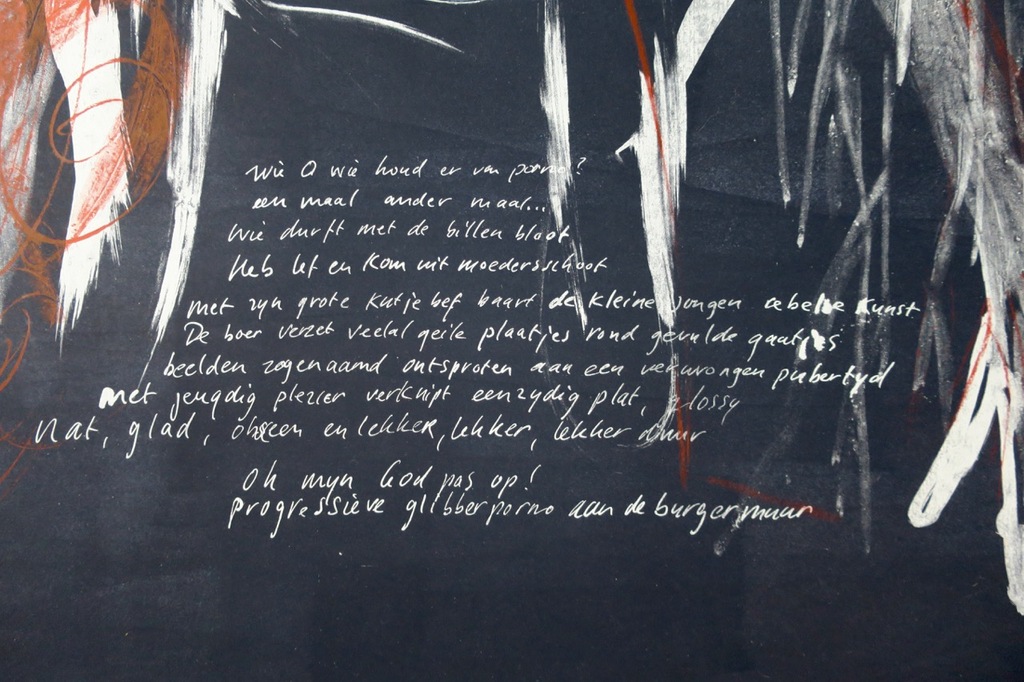 wie O wie houd er van porno?
een maal ander maal...
wie durft met de billen bloot
Heb lef en kom uit moedersschoot
met zyn grote kutje bef baart de kleine jongen rebelse kunst
De boer verzet veelal geile plaatjes rond gevulde gaatjes
beelden zogenaamd ontsproten aan een verwrongen pubertyd
met jeugdig plezier verknipt eenzydig plat, glossy
nat, glad, obsceen en lekker, lekker, lekker duur
Oh myn God pas op!
progressieve glibberporno aan de burgermuur